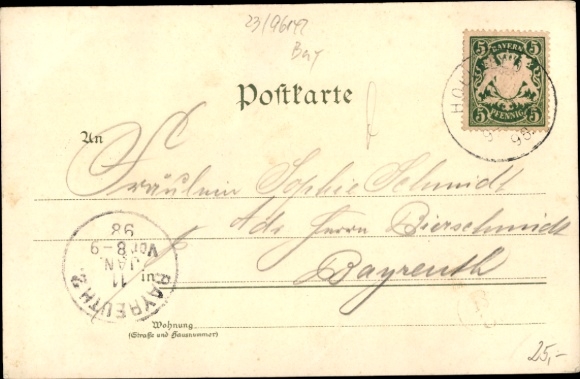 23/96142
Bay
5 BAYERN 5
5 PFENNIG 5
HO
98
Postkarte
An
Fräulein Sophie Schmidt
Adr. Herrn Bierschmidt
in Bayreuth
BAYREUTH 2
11
JAN.
Vor. 8-9
98
Wohnung
(Straße und Hausnummer)
25,-